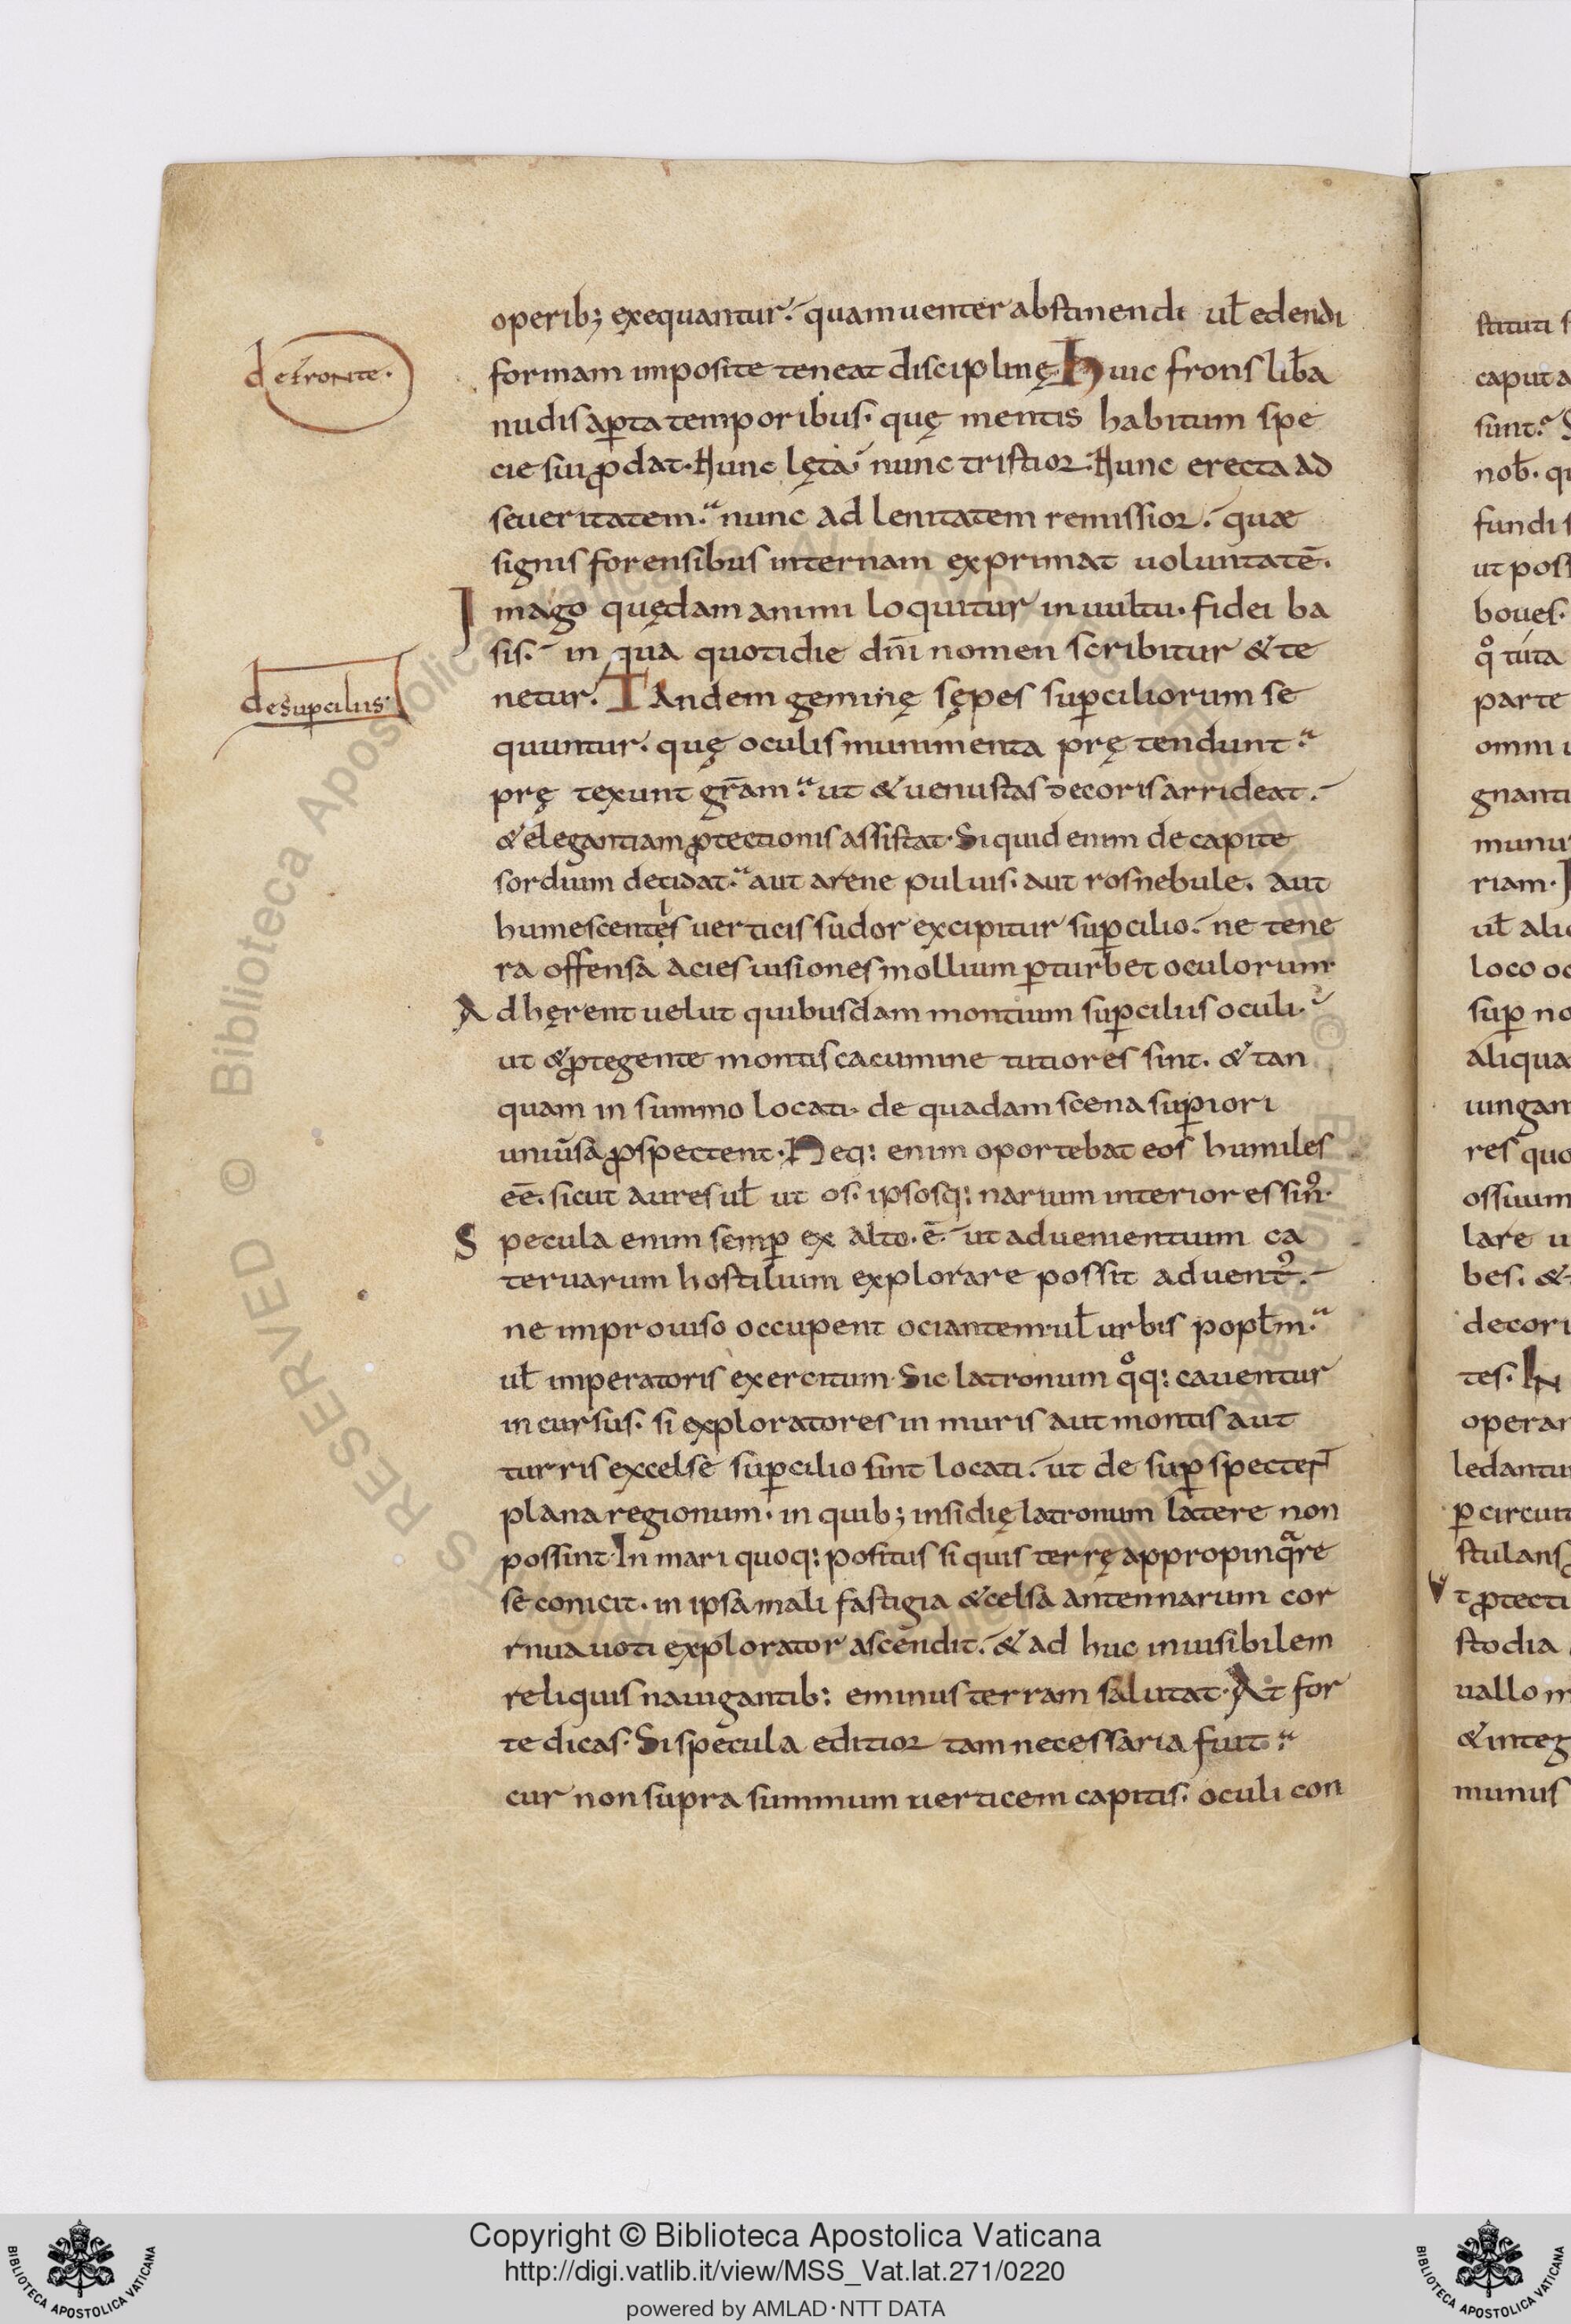 operib; exequantur. quam uenter abstinendi ul̄ edendi
de fronte.
formam imposite teneat disciplinę. Huic frons lib̄a
nudis ap̄ta temporibus. quę mentis habitum spe
cie sui ꝓdat. Nunc lęta nunc tristior. Nunc erecta ad
seueritatem. nunc ad lenitatem remissior. quae
signis forensibus internam exprimat uoluntatē.
Imago quędam animi loquitur in uultu. fidei ba
sis. in qua quotidie dn̄i nomen scribitur & te
de sup̱ciliis.
netur. Tandem geminę sępes sup̱ciliorum se
quuntur. quę oculis munimenta prę tendunt.
prę texunt gr̄am. ut & uenustas decoris arrideat.
& elegantiam ꝓtectionis assistat. Si quid enim de capite
sordium decidat. aut arene puluis. aut ros nebule. aut
humescentis uerticis sudor excipitur sup̱cilio. ne tene
ra offensa acies uisiones mollium p̱turbet oculorum.
Adhęrent uelut quibusdam montium sup̱ciliis oculi.
ut & ꝓtegente montis cacumine tutiores sint. & tan
quam in summo locati. de quadam scena sup̱iori
uniūsa ꝓspectent. Neq: enim oportebat eos humiles
eē. sicut aures ul̄ ut os. ipsosq: narium interiores sin᷒.
Specula enim semp̱ ex alto. ē ut aduenientium ca
teruarum hostilium explorare possit aduent᷒.
ne improuiso occupent ociantem. ul̄ urbis popl̄m.
ul̄ imperatoris exercitum. Sic latronum qͦq: cauentur
incursus. si exploratores in muris aut montis aut
turris excelse sup̱cilio sint locati. ut de sup̱ spectent
plana regionum. in quib; insidię latronum latere non
possint. In mari quoq: positus si quis terrę appropinqᵃre
se conicit. in ipsa mali fastigia & celsa antennarum cor
rnua uoti explorator ascendit. & ad huc inuisibilem
reliquis nauigantib: eminus terram salutat. At for
te dicas. Si specula editior tam necessaria fuit.
cur non supra summum uerticem capitis. oculi con
stituti
caput a
sunt.
nob̄. qu
fundi s
ut poss
boues.
qͦ tuta
parte
omni u
gnanti
munu
riam. I
ul̄ ali
loco oc
sup̱ no
aliqua
iungam
res quo
ossium
lare u
bes. &
decori
tes. In
operar
ledantu
p̱ circuit
stulans
Vt ꝓtecti
stodia
uallo m
& integ
munus
Copyright © Biblioteca Apostolica Vaticana
http://digi.vatlib.it/view/MSS_Vat.lat.271/0220
powered by AMLAD·NTT DATA
BIBLIOTECA APOSTOLICA VATICANA
BIBLIOTECA APOSTOLICA VATICANA